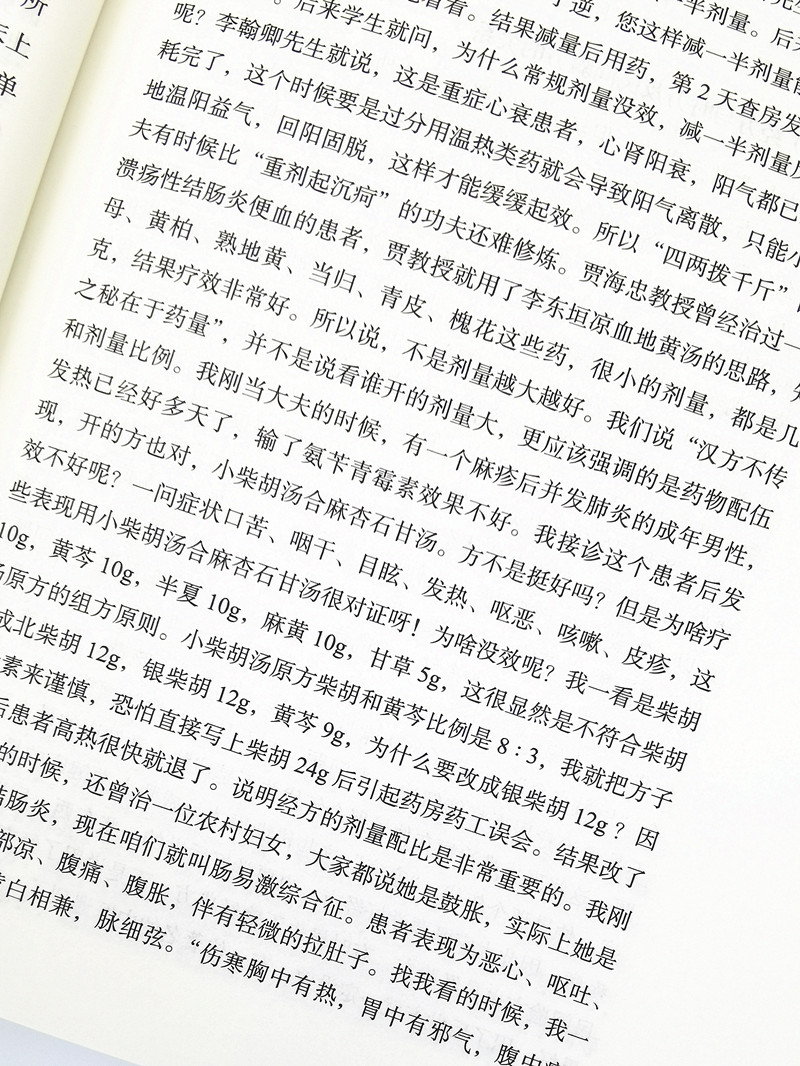 所
上
单
半剂量。后
逆，您这样减一半剂量
看看。结果减量后用药，第 2 天查房发
。后来学生就问，为什么常规剂量没效，减一半剂量
呢？李翰卿先生就说，这是重症心衰患者，心肾阳衰，阳气都已
耗完了，这个时候要是过分用温热类药就会导致阳气离散，只能小
地温阳益气，回阳固脱，这样才能缓缓起效。所以“四两拨千斤”
夫有时候比“重剂起沉疴”的功夫还难修炼。贾海忠教授曾经治过一
溃疡性结肠炎便血的患者，贾教授就用了李东垣凉血地黄汤的思路，
母、黄柏、熟地黄、当归、青皮、槐花这些药，很小的剂量，都是几
克，结果疗效非常好。所以说，不是剂量越大越好。我们说“汉方不传
之秘在于药量”，并不是说看谁开的剂量大，更应该强调的是药物配伍
和剂量比例。我刚当大夫的时候，有一个麻疹后并发肺炎的成年男性，
发热已经好多天了，输了氨苄青霉素效果不好。我接诊这个患者后发
现，开的方也对，小柴胡汤合麻杏石甘汤。方不是挺好吗？但是为啥疗
效不好呢？一问症状口苦、咽干、目眩、发热、呕恶、咳嗽、皮疹，这
些表现用小柴胡汤合麻杏石甘汤很对证呀！为啥没效呢？我一看是柴胡
10g，黄芩 10g，半夏 10g，麻黄 10g，甘草 5g，这很显然是不符合柴胡
汤原方的组方原则。小柴胡汤原方柴胡和黄芩比例是 8 : 3，我就把方子
成北柴胡 12g，银柴胡 12g，黄芩 9g，为什么要改成银柴胡 12g？因
素来谨慎，恐怕直接写上柴胡 24g 后引起药房药工误会。结果改了
后患者高热很快就退了。说明经方的剂量配比是非常重要的。我刚
的时候，还曾治一位农村妇女，大家都说她是鼓胀，实际上她是
结肠炎，现在咱们就叫肠易激综合征。患者表现为恶心、呕吐、
部凉、腹痛、腹胀，伴有轻微的拉肚子。找我看的时候，我一
黄白相兼，脉细弦。“伤寒胸中有热，胃中有邪气，腹中